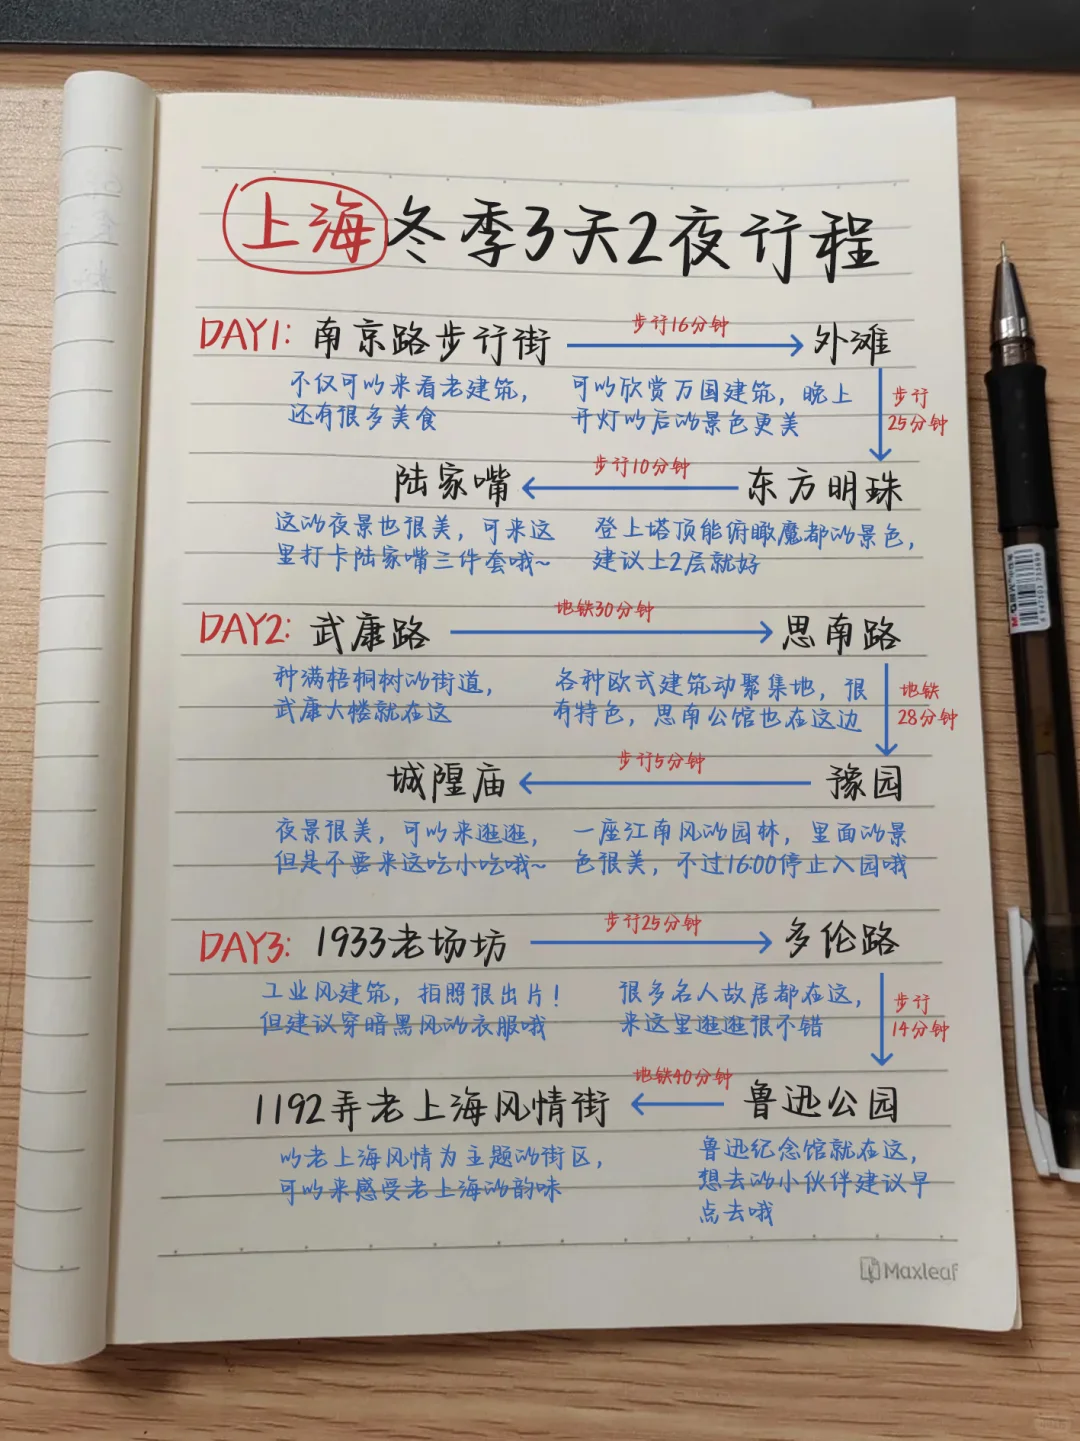 上海冬季3天2夜行程
DAY1: 南京路步行街 步行16分钟 外滩
不仅可以来看老建筑,
还有很多美食
可以欣赏万国建筑, 晚上
开灯以后的景色更美
步行
25分钟
陆家嘴 步行10分钟 东方明珠
这的夜景也很美, 可来这
里打卡陆家嘴三件套哦~
登上塔顶能俯瞰魔都的景色,
建议上2层就好
DAY2: 武康路 地铁30分钟 思南路
种满梧桐树的街道,
武康大楼就在这
各种欧式建筑动聚集地, 很
有特色, 思南公馆也在这边
地铁
28分钟
城隍庙 步行5分钟 豫园
夜景很美, 可以来逛逛,
但是不要来这吃小吃哦~
一座江南风的园林, 里面的景
色很美, 不过16:00停止入园哦
DAY3: 1933老场坊 步行25分钟 多伦路
工业风建筑, 拍照很出片!
但建议穿暗黑风的衣服哦
很多名人故居都在这,
来这里逛逛很不错
步行
14分钟
1192弄老上海风情街 地铁40分钟 鲁迅公园
以老上海风情为主题的街区,
可以来感受老上海的韵味
鲁迅纪念馆就在这,
想去的小伙伴建议早
点去哦
Maxleaf
M&G